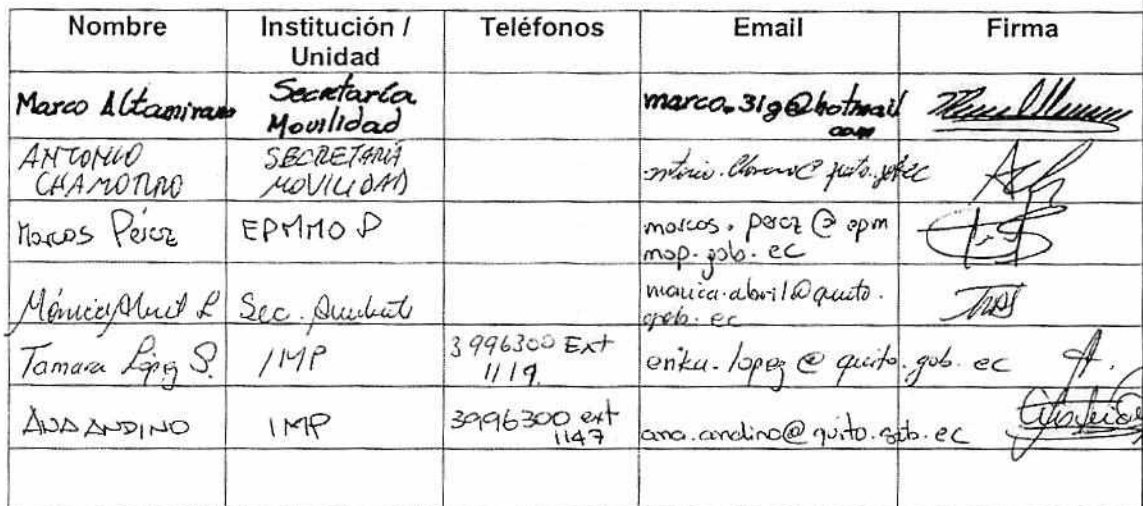 Nombre Institución / Unidad Teléfonos Email Firma
Marco Altamirano Secretaría Movilidad marco.31g@hotmail com
ANTONIO CHAMORRO SECRETARÍA MOVILIDAD
Marcos Pérez EPMMOP marcos.perez@epm mop.gob.ec
Mónica Abril L Sec. Ambiente monica.abril@quito. gob.ec
Tamara López S. IMP 3996300 Ext 1119 erika.lopez@quito.gob.ec
ANA ANDINO IMP 3996300 ext 1147 ana.andino@quito.gob.ec